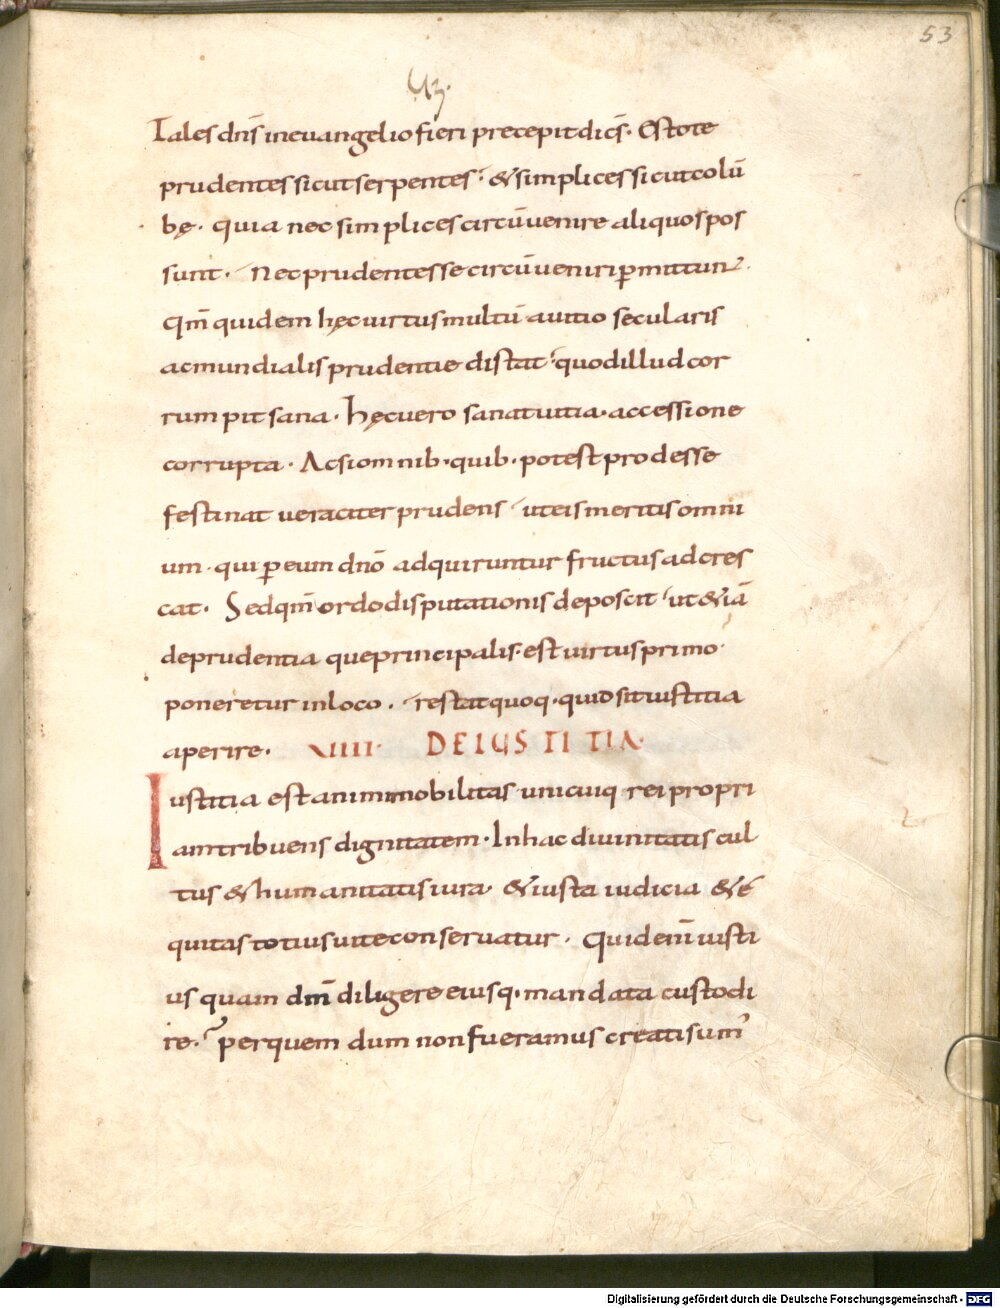 53
43.
Tales dn̄s in euangelio fieri precepit dicē̄s· Estote
prudentes sicut serpentes· & simplices sicut colū
bę· quia nec simplices circūuenire aliquos pos
sunt· Nec prudentes se circūueniri ꝑmittunt·
Qm̄ quidem hęc uirtus multū a uitio secularis
ac mundialis prudentie distat· quod illud cor
rumpit sana· hęc uero sanat uitia· accessione
corrupta· Ac si omnib· quib· potest prodesse
festinat ueraciter prudens· ut eis meritis omni
um· qui ꝑ eum dn̄o adquiruntur fructus adcres
cat· Sed qm̄ ordo disputationis deposcit· ut &iā
de prudentia que principalis· est uirtus primo
poneretur in loco· restat quoq· quid sit iustitia
aperire· XIIII· DE IUSTITIA·
Iustitia est animi nobilitas unicuiq rei propri
am tribuens dignitatem· In hac diuinitatis cul
tus & humanitatis iura· & iusta iudicia & ę
quitas totius uite conseruatur· Quid em̄ iusti
us quam dm̄ diligere eiusq· mandata custodi
re· per quem dum non fueramus creati sum'
Digitalisierung gefördert durch die Deutsche Forschungsgemeinschaft - DFG